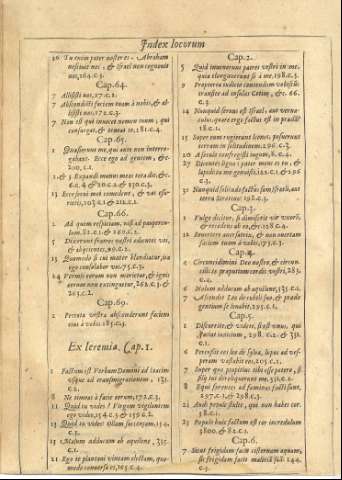 Index locorum
16 Tu enim pater noster es. Abraham
nescivit nos, & Israel non cognovit
nos, 264.c.3.
Cap. 64.
7 Allisisti nos, 177.c.2.
7 Abscondisti faciem tuam à nobis, & al-
lisisti nos, 172.c.3.
7 Non est qui invocet nomen tuum, qui
consurgat, & teneat te, 281.c.4.
Cap. 65.
1 Quæsierunt me, qui ante non interro-
gabant. Ecce ego ad gentem, & c.
200.c.1.
2 Expandi manus meas tota die, & c.
13 Ecce servi mei comedent, & vos esu-
rietis, 103.c.1 & 212.c.1.
Cap. 66.
2 Ad quem respiciam, nisi ad pauper-
lum.
5 Dixerunt fratres vestri odientes vos,
13 Quomodo si cui mater blandiatur, ita
ego consolabor vos, 75.c.3.
24 Vermis eorum non morietur, & ignis
eorum non extinguetur, 262.c.3. &
263.c.2.
Cap. 69.
2 Peccata vestra absconderunt faciem
eius à vobis, 185.c.3.
Ex Ieremia. Cap. 1.
2 Factum est Verbum Domini ad
usque ad transmigrationem, 131.
c.1.
8 Ne timeas à facie eorum, 172.c.3.
11 Quid tu vides? Virgam vigilantem
ego video, 154.c.3 & 156.c.2.
13 Quid tu vides? Ollam succensam, 154.
c.3.
15 Malum adducam ab aquilone, 351.
c.1.
21 Ego te plantavi vineam electam, quo-
modo conversa es, 105.c.4.
Cap. 2.
5 Quid invenerunt patres vestri in me,
quia elongaverunt se à me, 198.c.3.
9 Propterea iudicio contendam vobiscum
transite ad insulas Cetim, & c. 66.
c.3.
14 Nunquid servus est Israel, aut verna-
culus, quare ergo factus est in prædã?
18.c.1.
15 Super eum rugierunt leones, posuerunt
terram in solitudinem, 296.c.3.
20 A sæculo confregisti iugum, 8.c.4.
27 Dicentes ligno: Pater meus es tu, &
lapidi tu me genuisti, 122.c.1. & 196
c.3.
31 Nunquid solitudo factus sum Israeli, aut
terra serotina? 192.c.3.
Cap. 3.
1 Vulgo dicitur, si dimiserit vir uxorē,
& recedens ab eo, 128.c.4.
12 Revertere aversatrix, & non avertam
faciem meam à vobis, 173.c.3.
Cap. 4.
4 Circumcidimini Deo nostro, & circum-
cidite præputium cordis vestri, 283.
c.2.
6 Malum adducam ab aquilone, 135.c.1.
7 Ascendit Leo de cubili suo, & prædo
gentium se levabit, 295.c.1.
Cap. 5.
1 Discurrite, & videte, si est unus, qui
faciat iudicium, 298. c.2. & 331.
c.1.
6 Percussit eos leo de sylva, lupus ad ves-
peram vastabit eos, 205.c.1.
7 Super quo propitius tibi esse potero,
filij tui dereliquerunt me, 351.c.1.
8 Equi ferentes ad faminas facti sunt,
297.c.1, & 298.c.3.
21 Audi popule stulte, qui non habes cor.
38.c.1.
23 Populo huic factum est cor incredulum
300. & 82.c.1.
Cap. 6.
7 Sicut frigidam facit cisternam aquam,
sic frigidam facit malitiã suã. 244.
c.3.